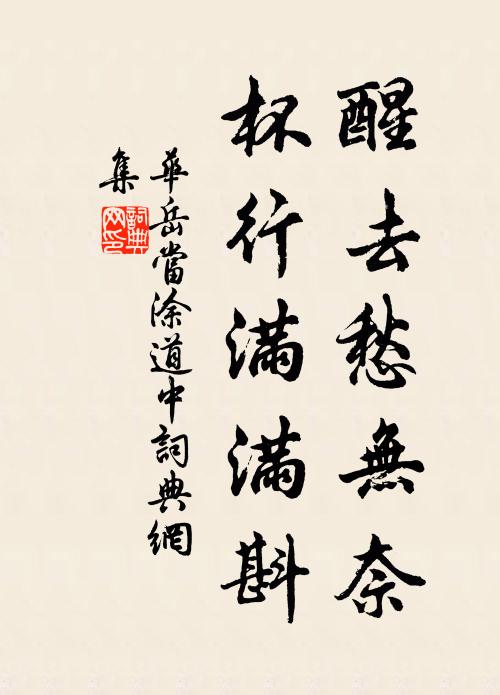 醒去愁無奈
杯行滿滿斟
華岳當涂道中詞典網
集
詞典
网印